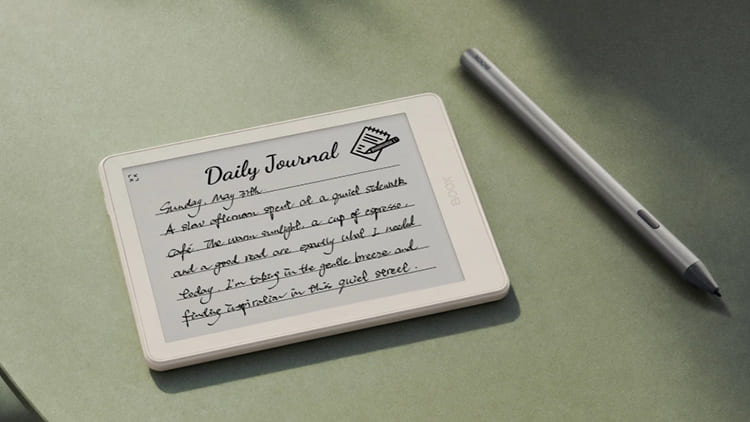 Daily Journal
Sunday, May 31th
A slow afternoon spent at a quiet sidewalk
café. The warm sunlight, a cup of espresso,
and a good read are exactly what I needed
today. I'm taking in the gentle breeze and
finding inspiration in this quiet street.
BOOX
BOOX